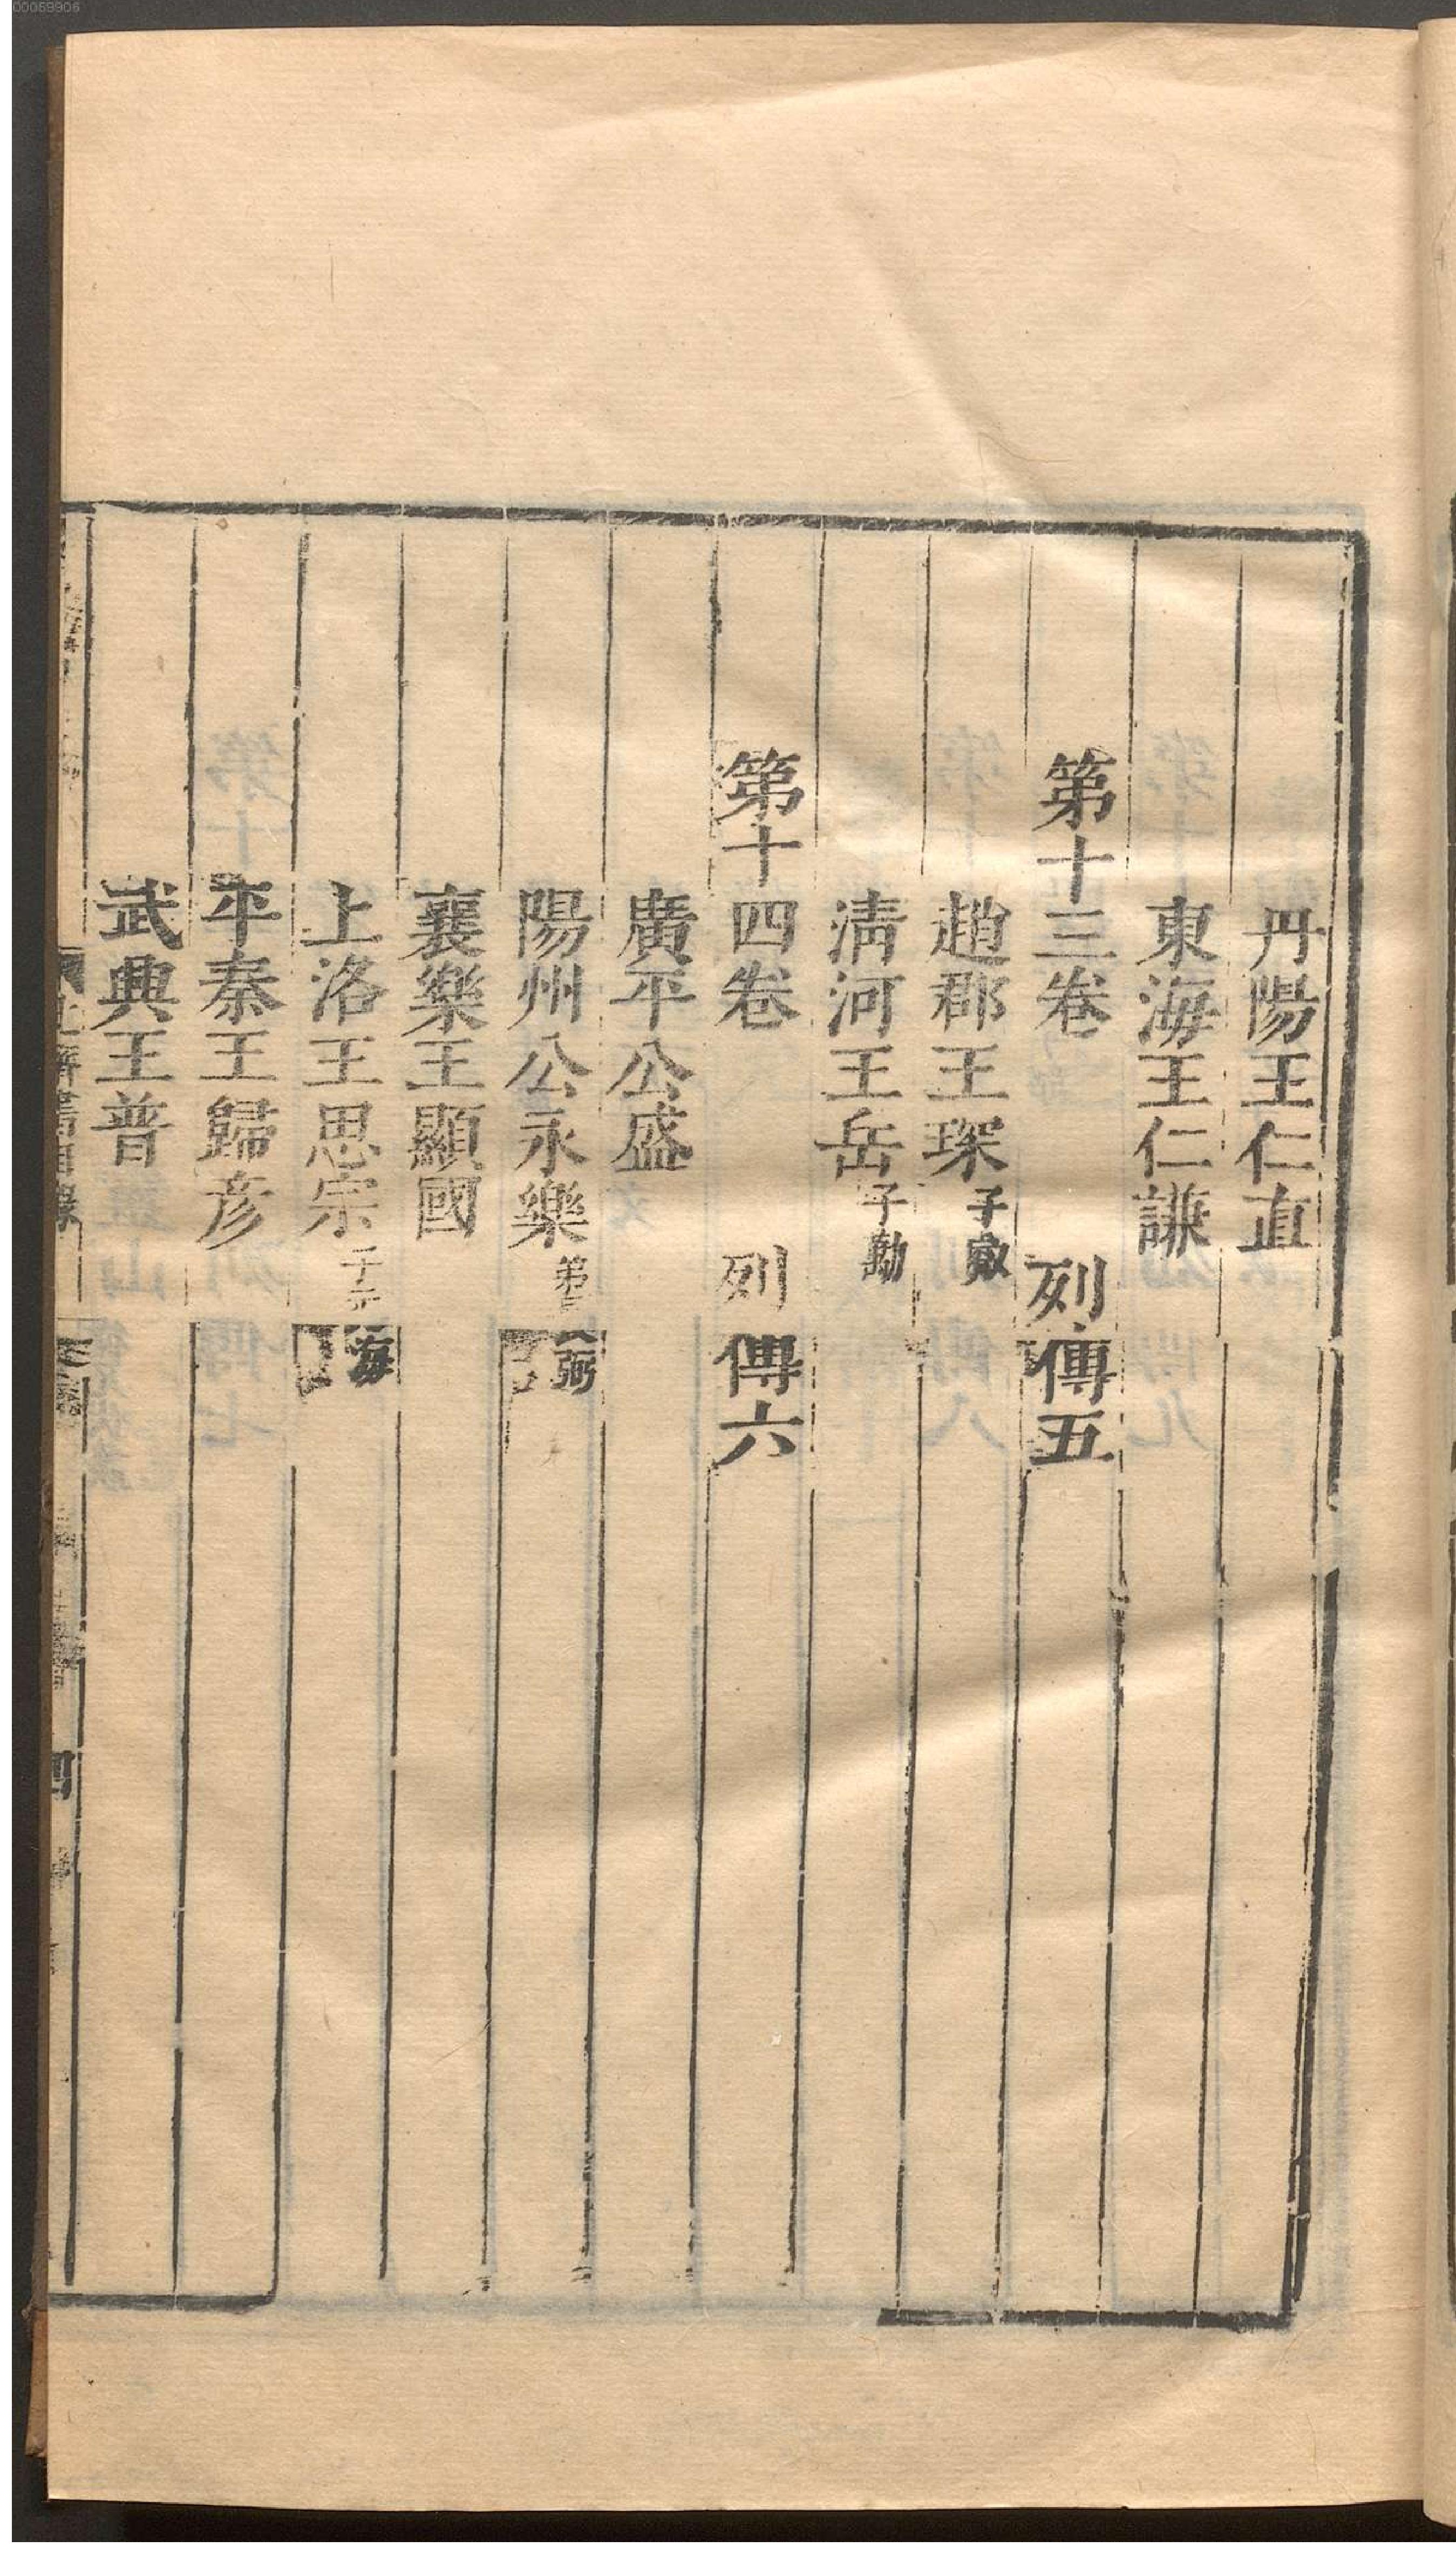 00059906
丹陽王仁直
東海王仁謙
第十三卷 列傳五
趙郡王琛 子叡
淸河王岳 子勱
第十四卷 列傳六
廣平公盛
陽州公永樂 弟長弼
襄樂王顯國
上洛王思宗 子元海
平秦王歸彥
武興王普
北齊書目錄
四